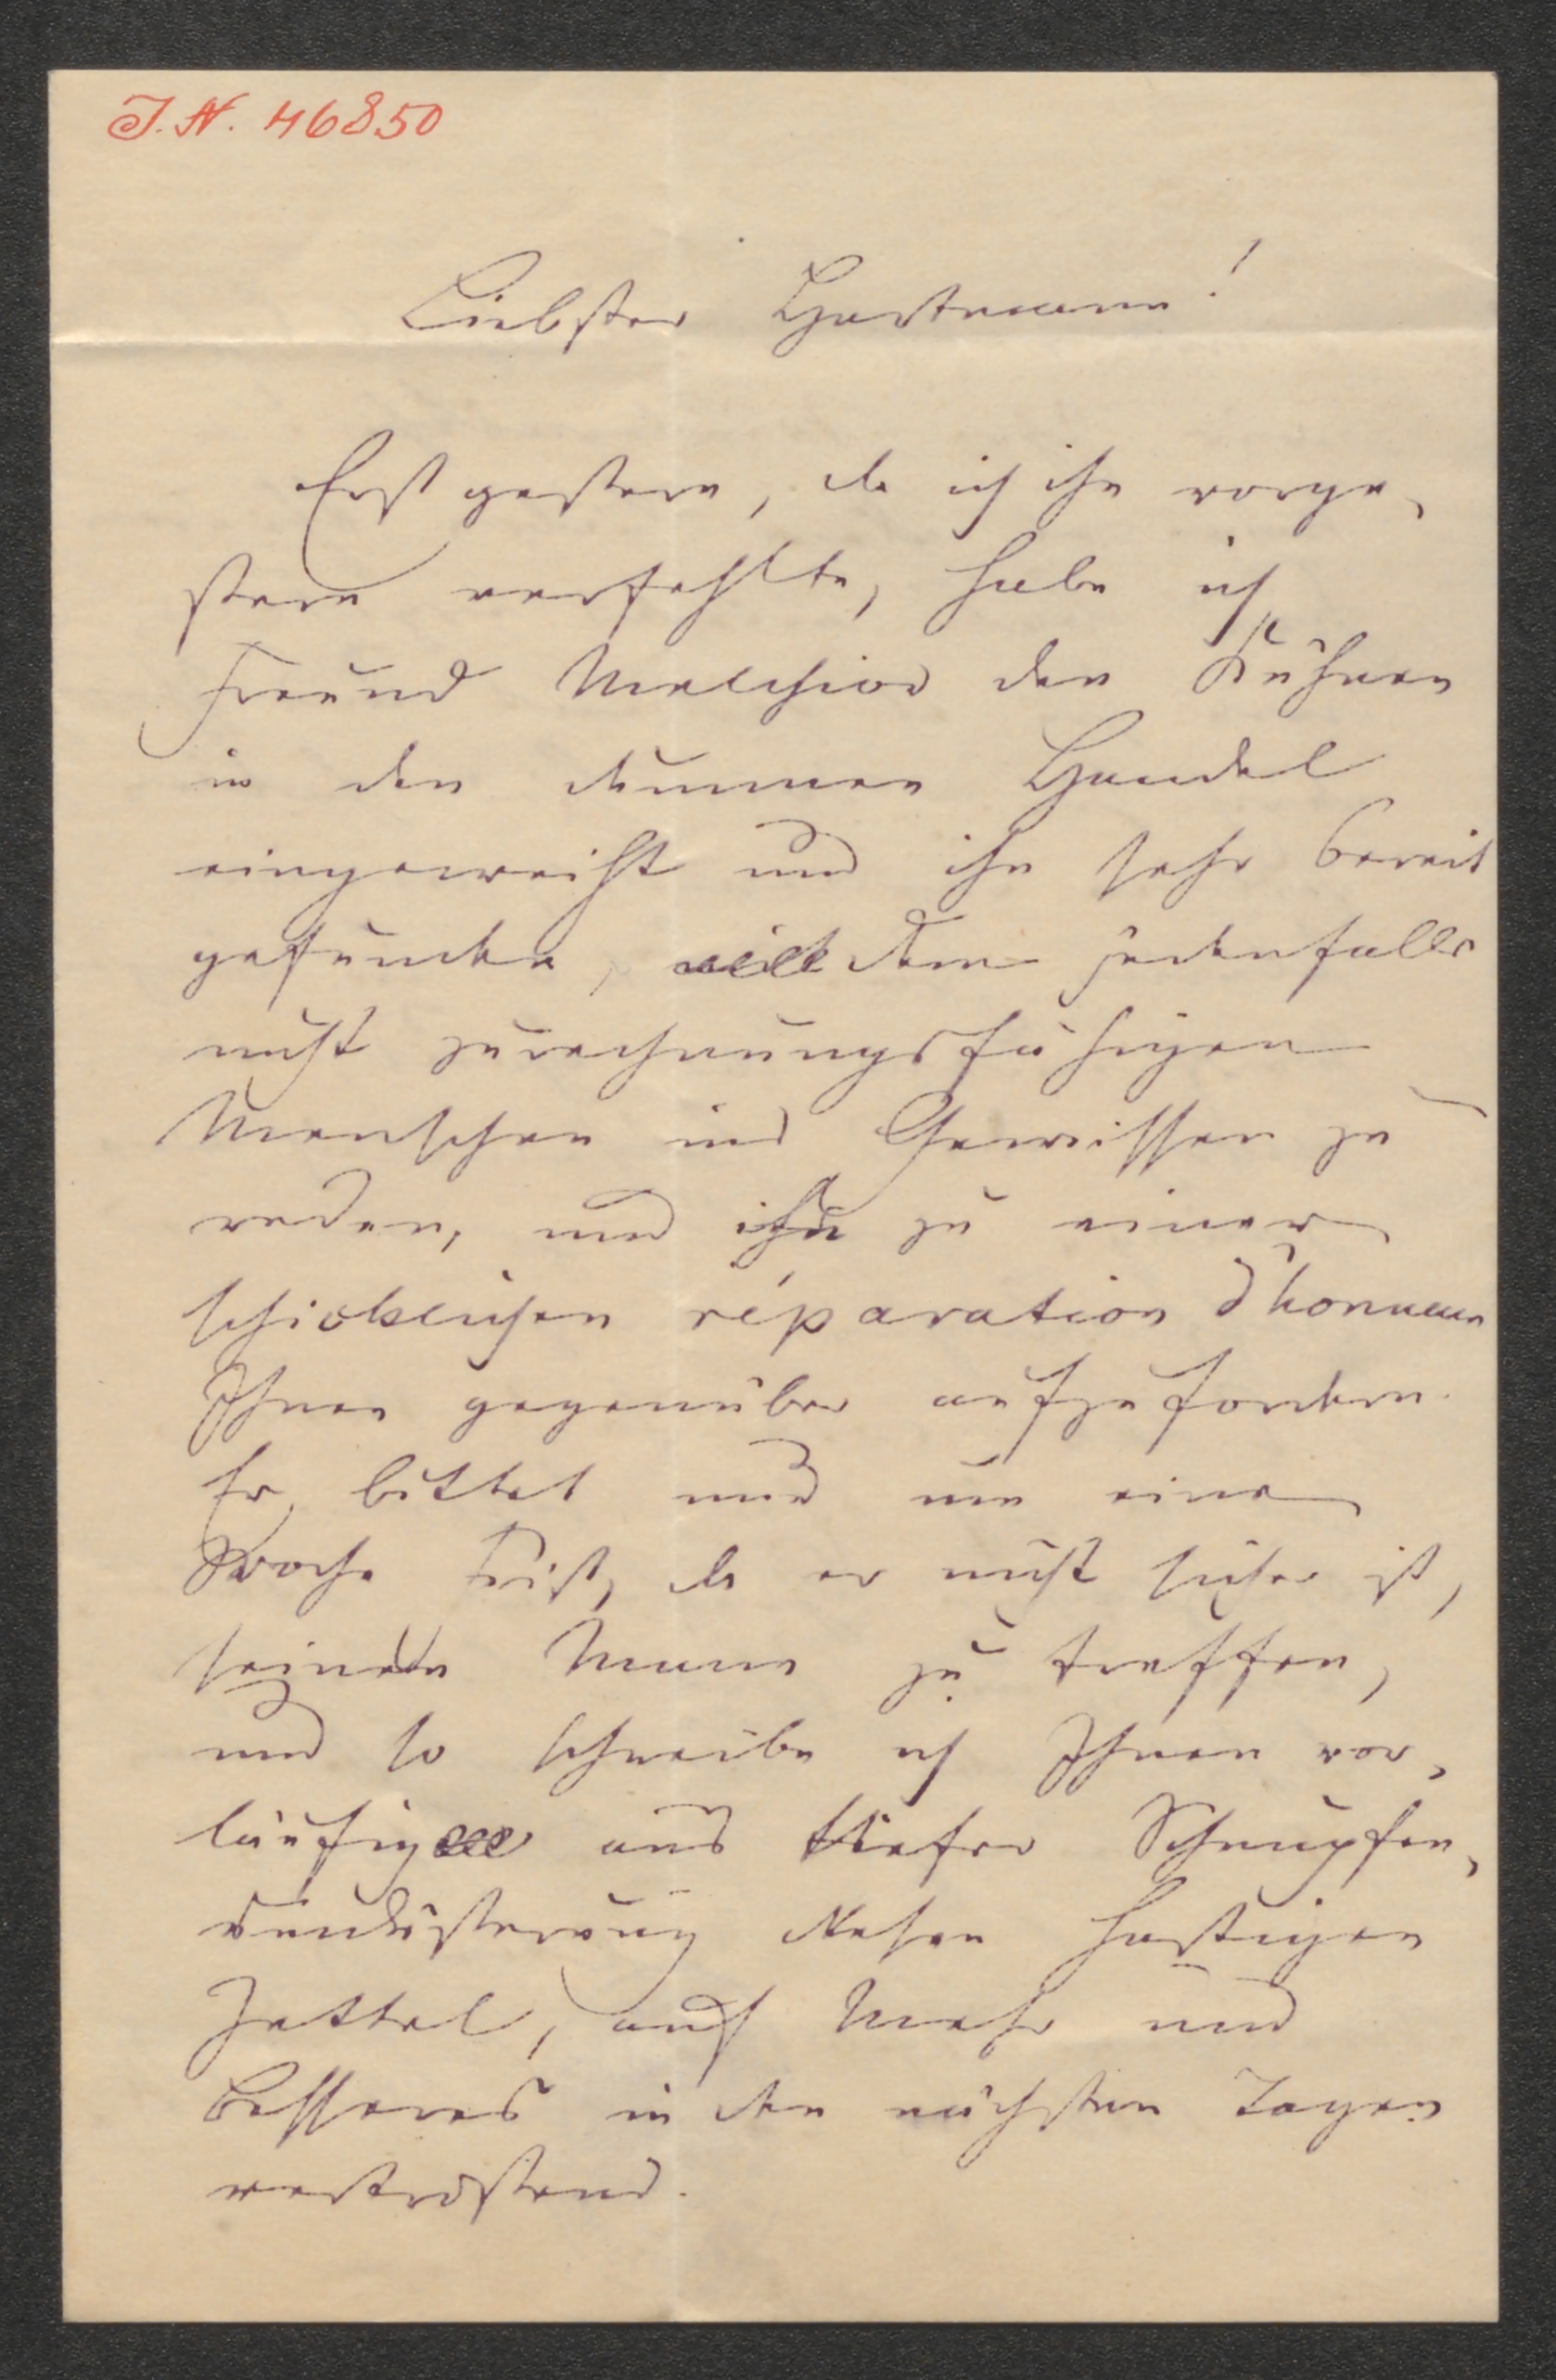 J. N. 46850
Liebster Hartmann!
Erst gestern, da ich ihn vorge-
stern verfehlte, habe ich
Freund Melchior den Kühnen
in den dummen Handel
eingeweiht und ihn sehr bereit
gefunden, dem jedenfalls
nicht zurechnungsfähigen
Menschen ins Gewissen zu
reden, und ihn zu einer
schicklichen réparation d'honneur
Ihnen gegenüber aufzufordern.
Er bittet nur um eine
Woche Frist, da er nicht sicher ist,
seinen Mann zu treffen,
und so schreibe ich Ihnen vor-
läufig aus tiefer Schnupfen-
verdüsterung diesen hastigen
Zettel, auf Mehr und
Besseres in den nächsten Tagen
vertröstend.